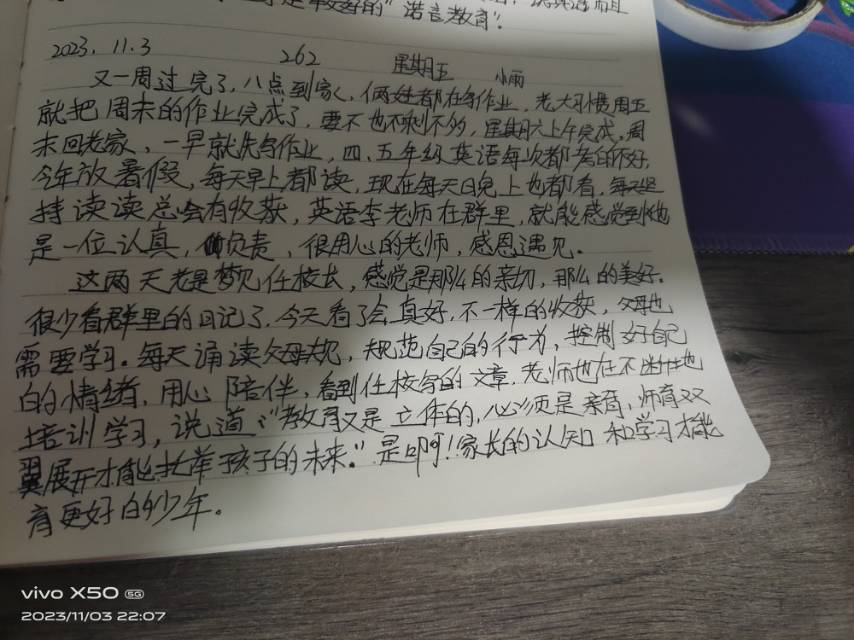 是最好的“诺言教育”！
2023. 11.3 262 星期五 小雨
又一周过完了，八点到家，俩娃都在写作业，老大习惯周五
就把周末的作业完成了，要不也不剩不的，星期六上午完成，周
末回老家，一早就先写作业，四、五年级英语每次都考的不好，
今年放暑假，每天早上都读，现在每天晚上也都看，每天坚
持读读总会有收获，英语李老师在群里，就能感觉到他
是一位认真，负责，很用心的老师，感恩遇见。
这两天老是梦见任校长，感觉是那么的亲切，那么的美好。
很少看群里的日记了，今天看了会真好，不一样的收获，父母也
需要学习。每天诵读父母规，规范自己的行为，控制好自己
的情绪，用心陪伴，看到任校写的文章，老师也在不断地
培训学习，说道：“教育又是立体的，必须是亲育，师育双
翼展开才能托举孩子的未来。”是啊！家长的认知和学习才能
育更好的少年。
vivo X50 5G
2023/11/03 22:07